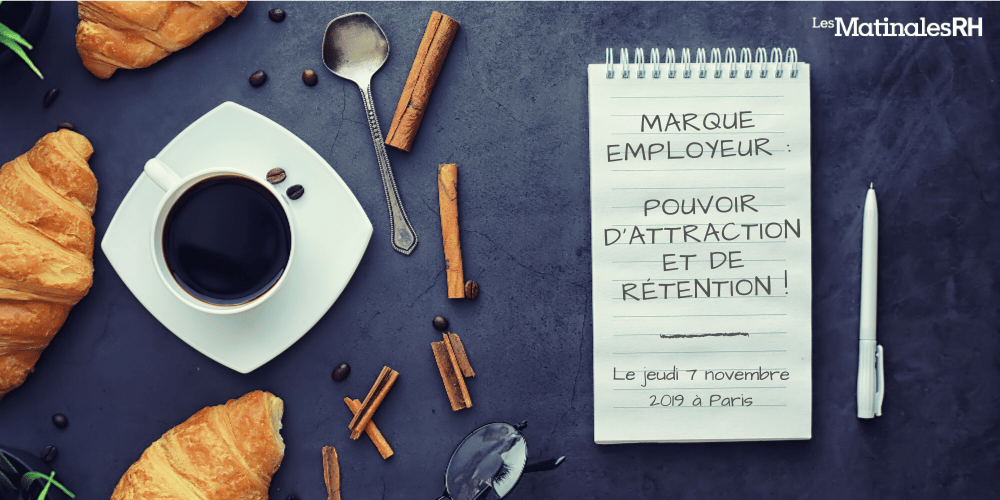 Les MatinalesRH
MARQUE
EMPLOYEUR :
POUVOIR
D'ATTRACTION
ET DE
RÉTENTION !
Le jeudi 7 novembre
2019 à Paris